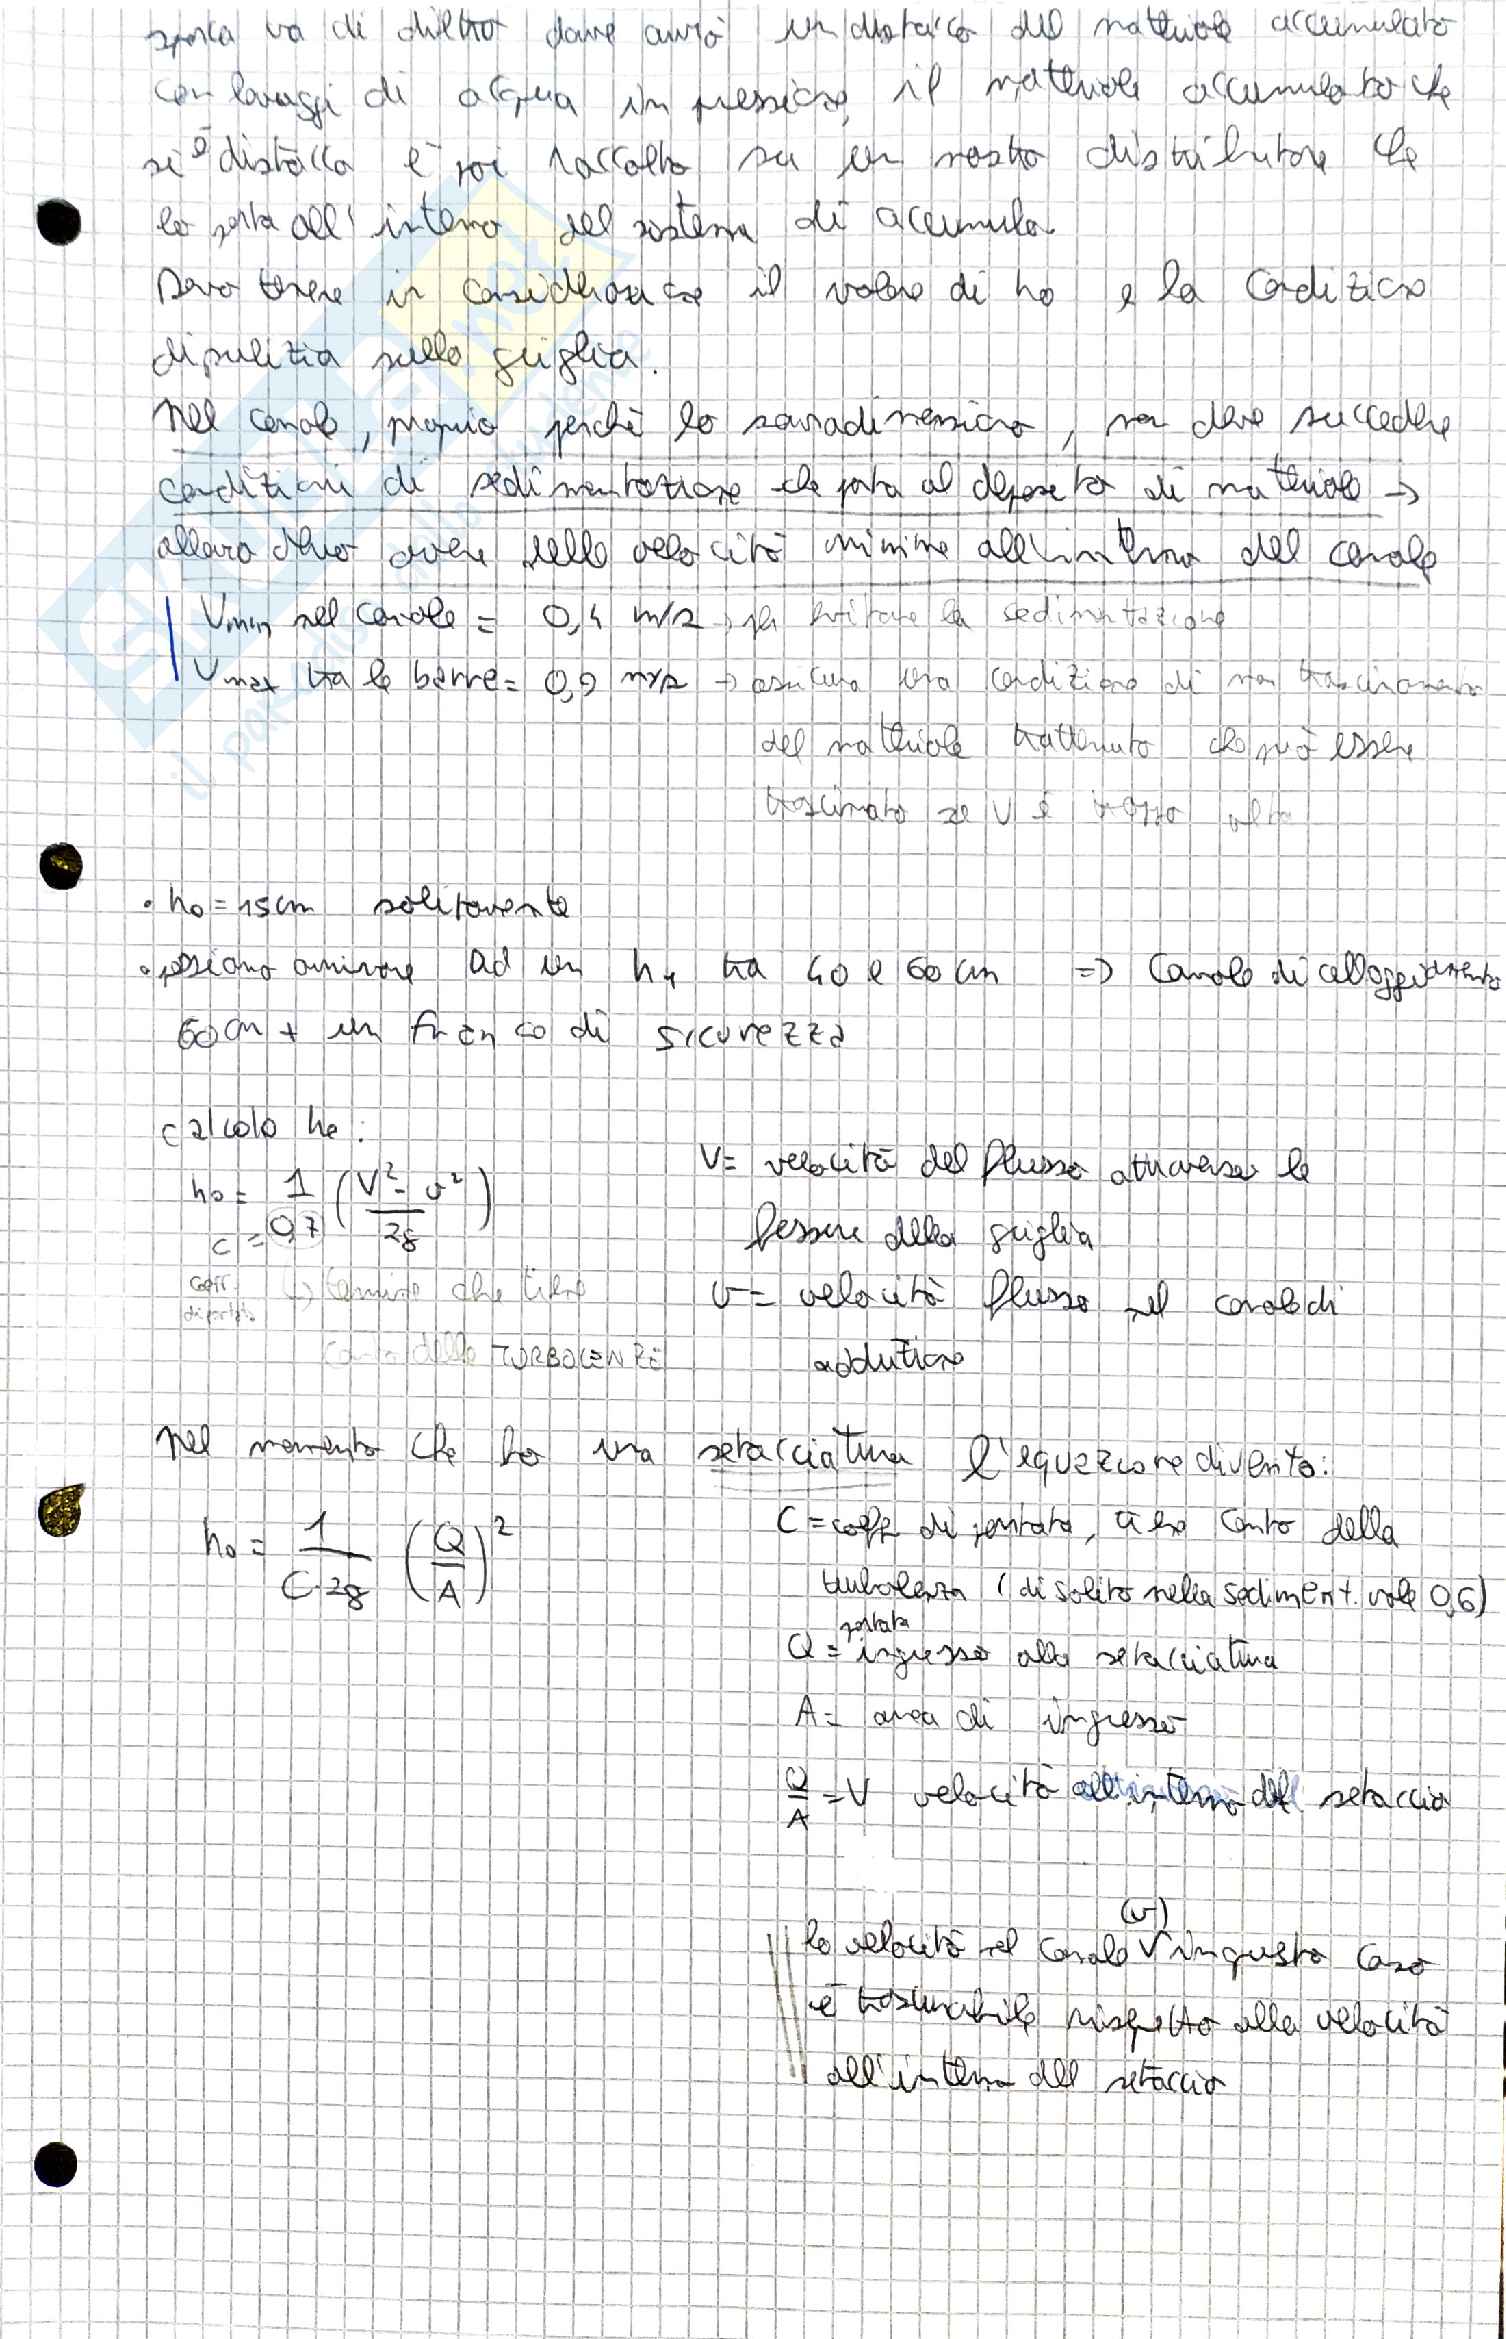 sporca va di dietro dove avrò un distacco del materiale accumulato
con lavaggi di acqua in pressione, il materiale accumulato che
si è distacca è poi raccolto su un nastro distributore che
lo porta all'interno del sistema di accumulo.
Devo tenere in considerazione il valore di h0 e la condizione
di pulizia sulla griglia.
Nel canale, proprio perchè lo sovradimensiono, non deve succedere
condizioni di sedimentazione che porta al deposito di materiale →
allora devo avere delle velocità minime all'interno del canale
Vmin nel canale = 0,4 m/s → per evitare la sedimentazione
Vmax tra le barre = 0,9 m/s → assicura una condizione di non trascinamento
del materiale trattenuto che può essere
trascinato se V è troppo alta
• h0 = 15 cm solitamente
• possiamo arrivare ad un h1 tra 40 e 60 cm => Canale di alloggiamento
60 cm + un franco di sicurezza
calcolo h0:
h0 = 1/0,7 (V² - v²/2g)
c =
coeff. di portata
↳ termine che tiene
conto delle TURBOLENZE
V = velocità del flusso attraverso le
fessure della griglia
v = velocità flusso nel canale di
adduzione
Nel momento che ho una setacciatura l'equazione diventa:
h0 = 1/C·2g (Q/A)²
C = coeff di portata, tiene conto della
turbolenza (di solito nella sediment. vale 0,6)
Q = portata ingresso alla setacciatura
A = area di ingresso
Q/A = V velocità all'interno del setaccio
la velocità nel canale (v) in questo caso
è trascurabile rispetto alla velocità
all'interno del setaccio
il paradiso dello studente